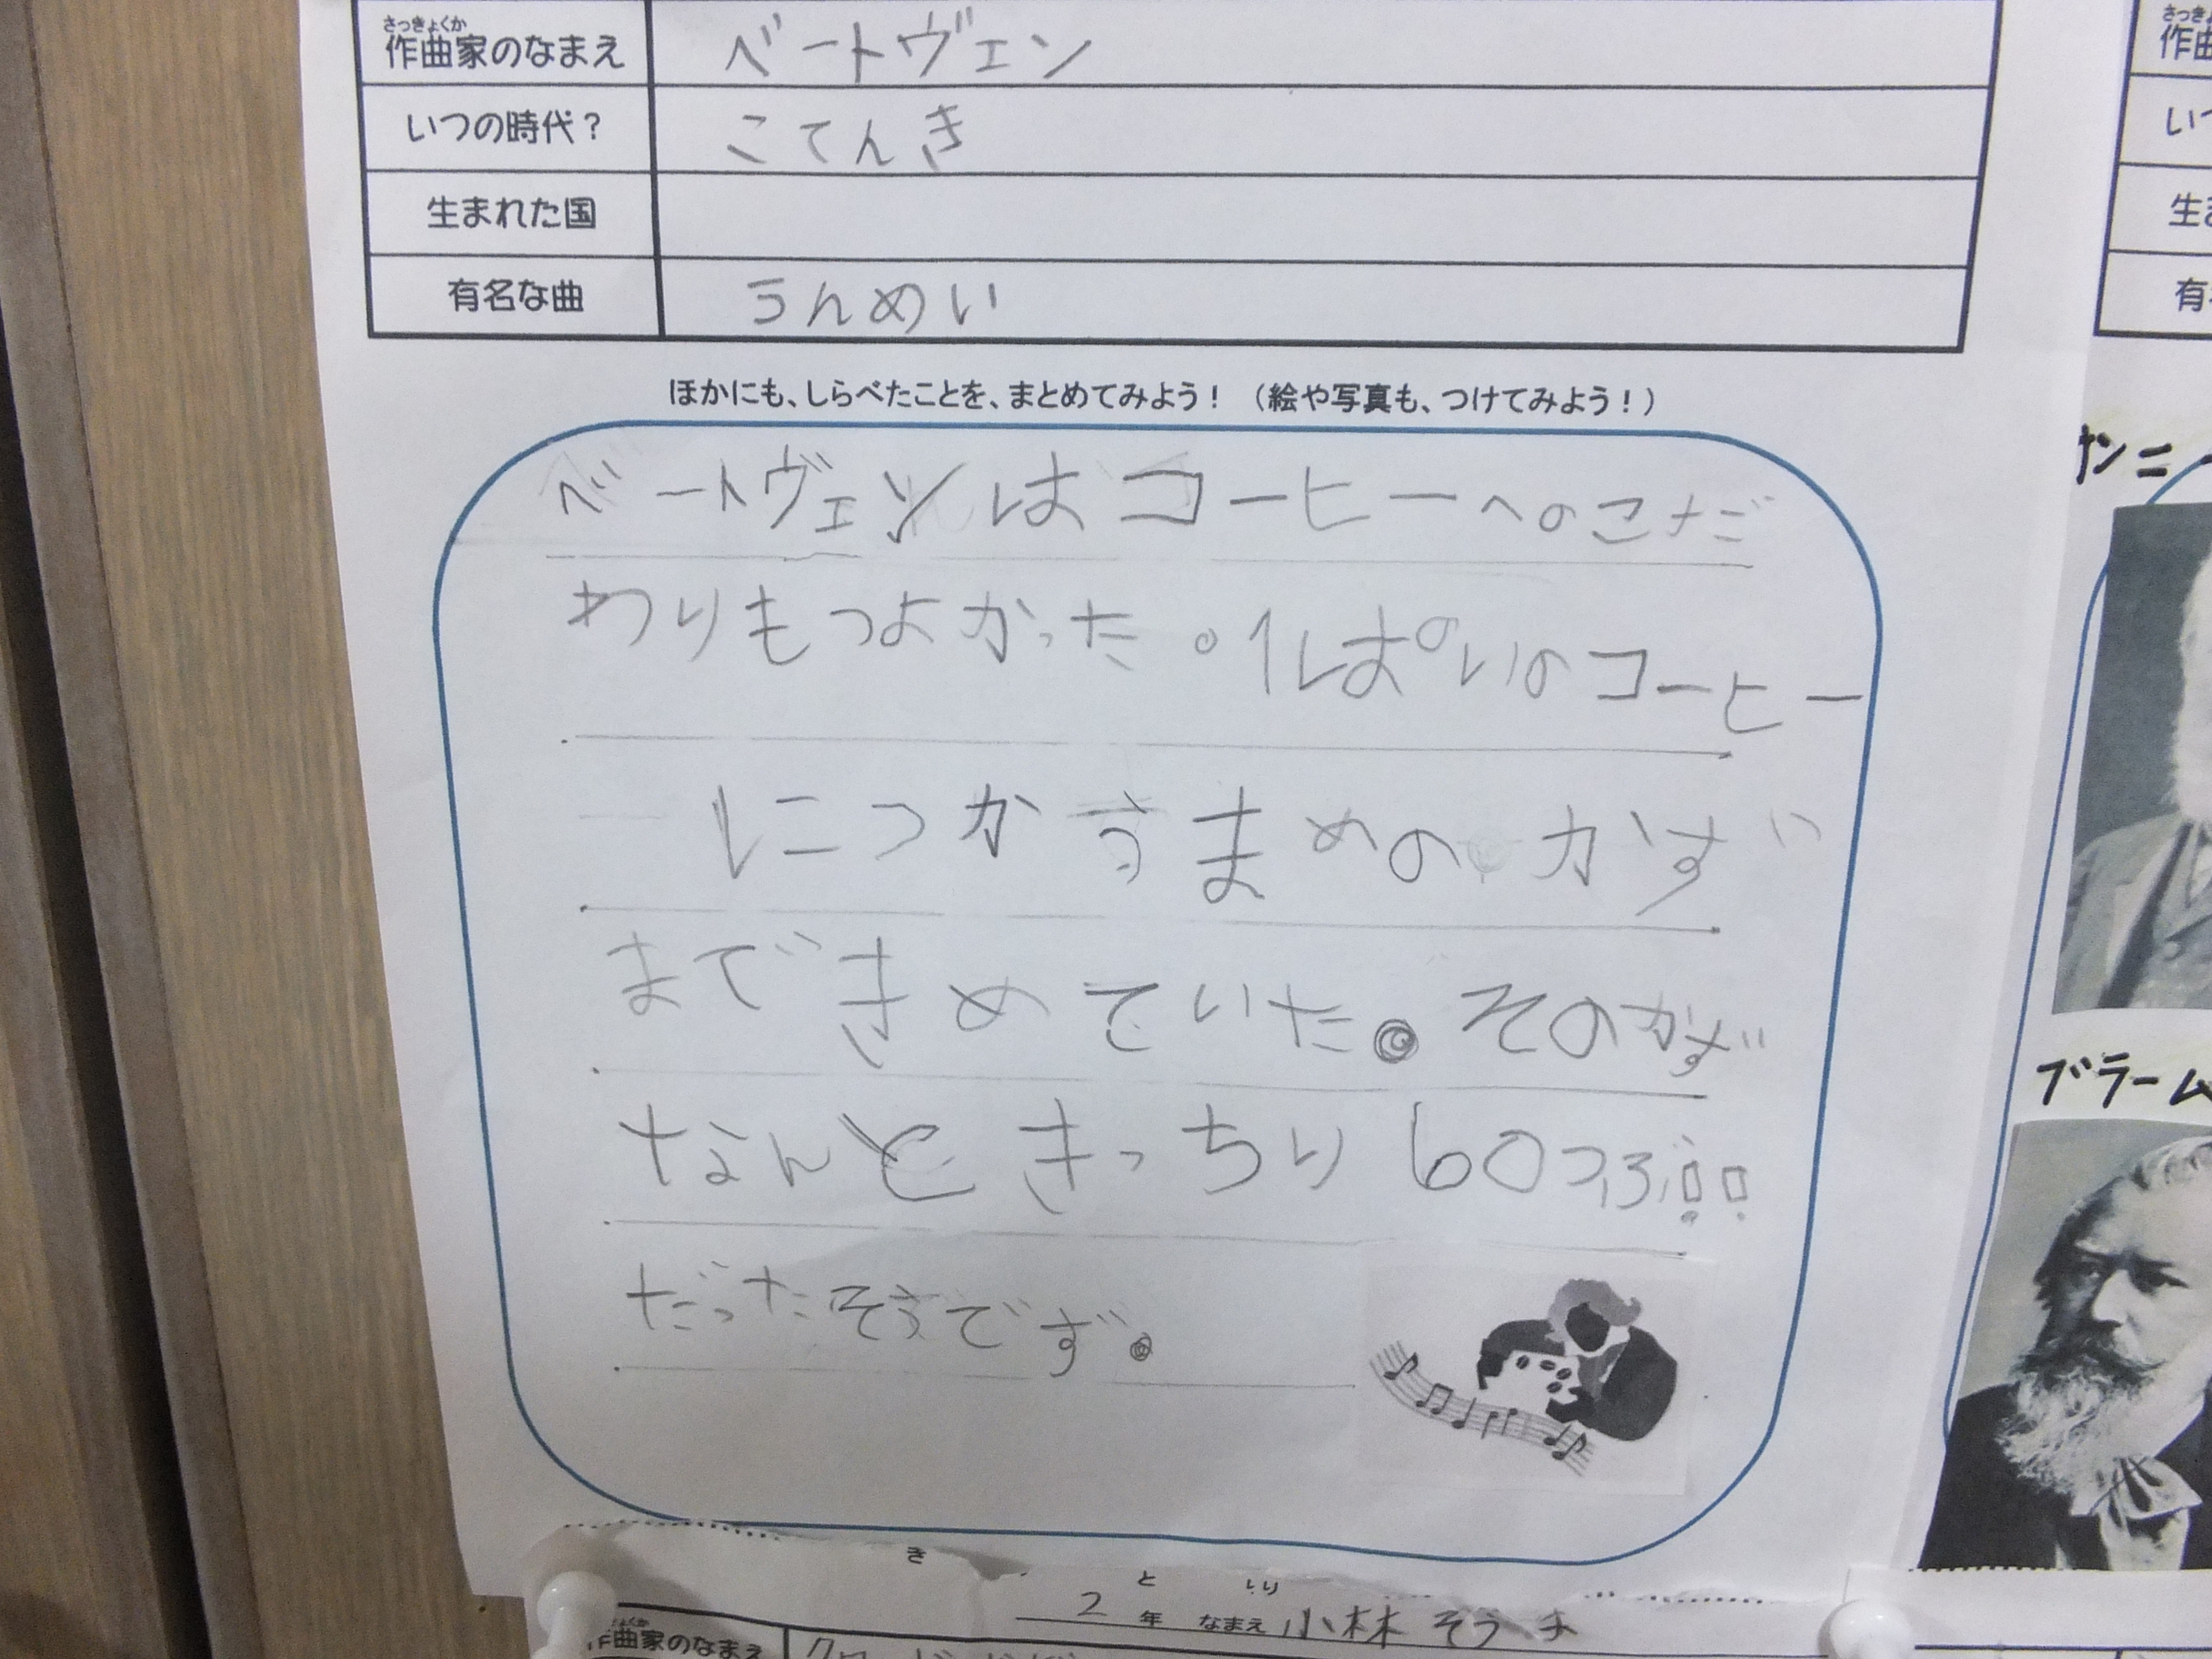 さっきょくか
作曲家のなまえ ベートヴェン
いつの時代？ こてんき
生まれた国
有名な曲 うんめい
ほかにも、しらべたことを、まとめてみよう！（絵や写真も、つけてみよう！）
ベートヴェンはコーヒーへのこだ
わりもつよかった。1ぱいのコーヒー
につかうまめのかず
まできめていた。そのかず
なんときっちり60つぶ!!
だったそうです。
き
と しり
2 年 なまえ 小林 そうま
ょくか
作曲家のなまえ
さっき
作曲
いつ
生ま
有名
サン＝
ブラーム